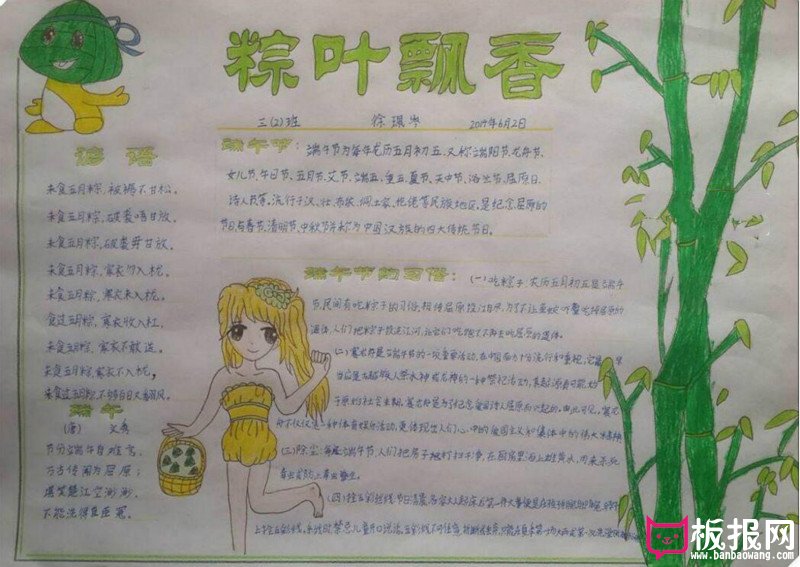 粽叶飘香
三(2)班 徐 2019年6月2日
谚语
未食五月粽,被褥不甘松。
未食五月粽,破裘唔甘放。
未食五月粽,破裘毋甘放。
未食五月粽,寒衣勿入栊。
未食五月粽,寒衣未入栊。
食过五月粽,寒衣收入杠。
未食五月粽,寒衣不敢送。
未食五月粽,寒衣不入栊,
食过五月粽,不够百日又翻风。
端午
(唐) 文秀
节分端午自谁言,
万古传闻为屈原;
堪笑楚江空渺渺,
不能洗得直臣冤。
端午节:端午节为每年农历五月初五,又称端阳节、龙舟节、
女儿节、午日节、五月节、艾节、端五、重五、夏节、天中节、浴兰节、屈原日、
诗人节等。流行于汉、壮、布依、侗、土家、仡佬等民族地区,是纪念屈原的
节日,与春节、清明节、中秋节并称为中国汉族的四大传统节日。
端午节的习俗:(一)吃粽子:农历五月初五是端午
节,民间有吃粽子的习俗,相传屈原投江自尽,为了不让
遗体,人们把粽子投进江河,让它们吃饱了不再去吃屈原的遗体。
(二)赛龙舟是端午节的一项重要活动,在中国南方十分流行
于原始社会末期,赛龙舟是为了纪念爱国诗人屈原而兴起的。由此可见,赛龙
舟不仅仅是一种体育娱乐活动,更体现出人们心中的爱国主义和集体
(三)除尘:每逢端午节,人们把房子打扫干净,在
(四)拴五彩丝线:节日清晨,各家大人起床后第一件大事便是在孩子
板报网
www.banbaowang.com